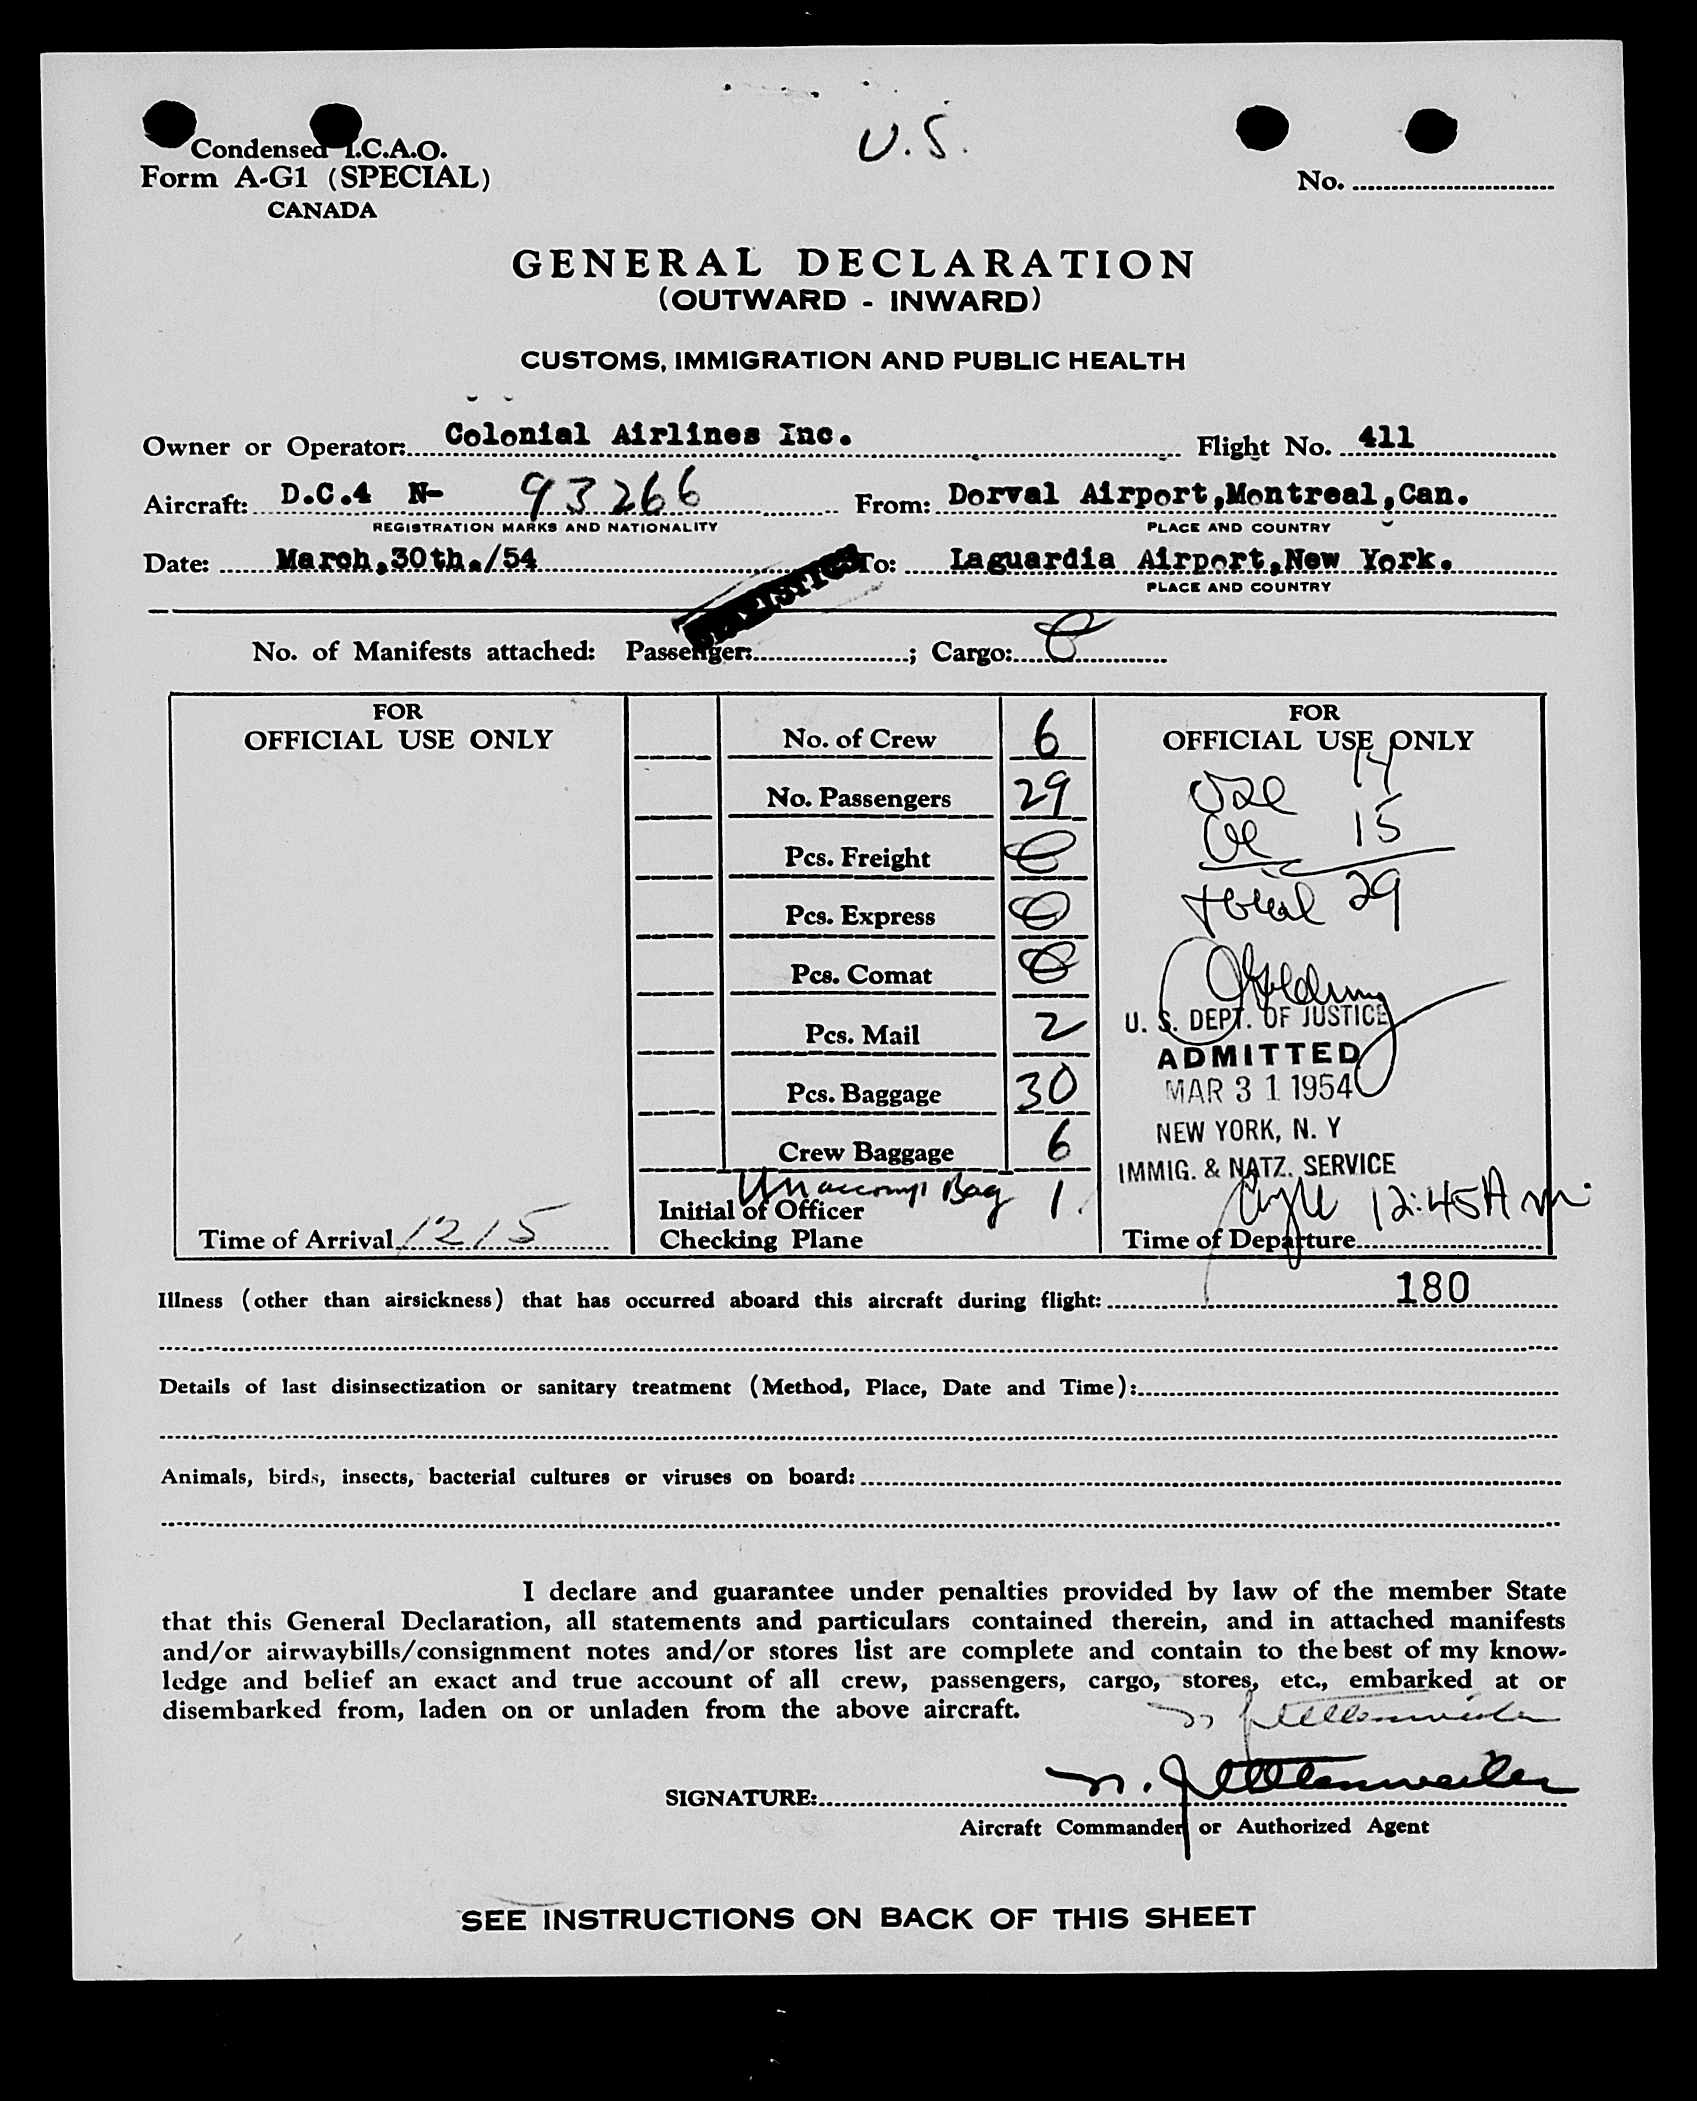 U.S.
Condensed I.C.A.O.
Form A-G1 (SPECIAL)
CANADA
No.
GENERAL DECLARATION
(OUTWARD - INWARD)
CUSTOMS, IMMIGRATION AND PUBLIC HEALTH
Owner or Operator: Colonial Airlines Inc. Flight No. 411
Aircraft: D.C.4 N- 93266 From: Dorval Airport,Montreal,Can.
REGISTRATION MARKS AND NATIONALITY PLACE AND COUNTRY
Date: March,30th./54 To: Laguardia Airport,New York.
PLACE AND COUNTRY
STATISTICS
No. of Manifests attached: Passenger: ; Cargo: 0
FOR
OFFICIAL USE ONLY
Time of Arrival 1215
No. of Crew 6
No. Passengers 29
Pcs. Freight 0
Pcs. Express 0
Pcs. Comat 0
Pcs. Mail 2
Pcs. Baggage 30
Crew Baggage 6
Unaccomp Bag 1
Initial of Officer
Checking Plane
FOR
OFFICIAL USE ONLY
14
15
total 29
U. S. DEPT. OF JUSTICE
ADMITTED
MAR 31 1954
NEW YORK, N. Y
IMMIG. & NATZ. SERVICE
12:45A m.
Time of Departure
Illness (other than airsickness) that has occurred aboard this aircraft during flight: 180
Details of last disinsectization or sanitary treatment (Method, Place, Date and Time):
Animals, birds, insects, bacterial cultures or viruses on board:
I declare and guarantee under penalties provided by law of the member State
that this General Declaration, all statements and particulars contained therein, and in attached manifests
and/or airwaybills/consignment notes and/or stores list are complete and contain to the best of my know-
ledge and belief an exact and true account of all crew, passengers, cargo, stores, etc., embarked at or
disembarked from, laden on or unladen from the above aircraft.
SIGNATURE:
Aircraft Commander or Authorized Agent
SEE INSTRUCTIONS ON BACK OF THIS SHEET